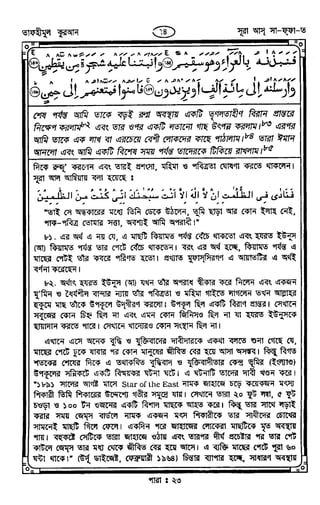 তাফহীমুল কুরআন
১৪
সূরা আস্ সা-ফ্ফা-ত
فَنَبَذْنٰهُ بِالْعَرَآءِ وَهُوَ سَقِيْمٌ ۚ وَاَنْۢبَتْنَا عَلَيْهِ شَجَرَةً مِّنْ يَّقْطِيْنٍ
وَاَرْسَلْنٰهُ اِلٰى مِائَةِ اَلْفٍ اَوْ يَزِيْدُوْنَ ۚ فَاٰمَنُوْا فَمَتَّعْنٰهُمْ اِلٰى حِيْنٍ
শেষ পর্যন্ত আমি তাকে বড়ই রুগ্ন অবস্থায় একটি তৃণলতাহীন বিরান প্রান্তরে
নিক্ষেপ করলাম৮২ এবং তার ওপর একটি লতানো গাছ উৎপন্ন করলাম।৮৩ এরপর
আমি তাকে এক লাখ বা এরচেয়ে বেশী লোকদের কাছে পাঠালাম।৮৪ তারা ঈমান
আনলো এবং আমি একটি বিশেষ সময় পর্যন্ত তাদেরকে টিকিয়ে রাখলাম।৮৫
দিকে রুজু' করতেন এবং তারই প্রশংসা, মহিমা ও পবিত্রতা ঘোষণা করতে থাকতেন।
সূরা আল আম্বিয়ায় বলা হয়েছে :
فَنَادٰى فِى الظُّلُمٰتِ اَنْ لَّآ اِلٰهَ اِلَّآ اَنْتَ سُبْحٰنَكَ اِنِّىْ كُنْتُ مِنَ الظّٰلِمِيْنَ
"তাই সে অন্ধকারের মধ্যে তিনি ডেকে উঠলেন, তুমি ছাড়া আর কোন ইলাহ নেই,
পাক-পবিত্র তোমার সত্তা, অবশ্যই আমি অপরাধী।"
৮১. এর অর্থ এ নয় যে, এ মাছটি কিয়ামত পর্যন্ত বেঁচে থাকতো এবং হযরত ইউনুস
(আ) কিয়ামত পর্যন্ত তার পেটে বেঁচে থাকতেন। বরং এর অর্থ হচ্ছে, কিয়ামত পর্যন্ত এ
মাছের পেটই তাঁর কবরে পরিণত হতো। প্রখ্যাত মুফাসসিরগণ এ আয়াতটির এ অর্থই
বর্ণনা করেছেন।
৮২. অর্থাৎ হযরত ইউনুস (আ) যখন তাঁর অপরাধ স্বীকার করে নিলেন এবং একজন
মু'মিন ও ধৈর্যশীল বান্দার ন্যায় তাঁর পবিত্রতা ও মহিমা গাইতে লাগলেন তখন আল্লাহর
হুকুমে মাছ তাঁকে উপকূলে উদ্গীরণ করলো। উপকূল ছিল একটি বিরাণ প্রান্তর। সেখানে
সবুজের কোন চিহ্ন ছিল না এবং এমন কোন জিনিসও ছিল না যা হযরত ইউনুসকে
ছায়াদান করতে পারে। সেখানে খাদ্যেরও কোন সংস্থান ছিল না।
এখানে এসে অনেক বুদ্ধি ও যুক্তিবাদের দাবীদারকে একথা বলতে শুনা গেছে যে,
মাছের পেটে ঢুকে যাবার পর কোন মানুষের জীবিত বের হয়ে আসা অসম্ভব। কিন্তু বিগত
শতকের শেষের দিকে এ তথাকথিত বুদ্ধিবাদ ও যুক্তিবাদীতার কেন্দ্র ভূমির (ইংল্যাণ্ড)
উপকূলের সন্নিকটে একটি বিস্ময়কর ঘটনা ঘটে। এ ঘটনাটি তাদের দাবী খণ্ডন করে।
"১৮৯১ সালের আগষ্ট মাসে Star of the East নামক জাহাজে চড়ে কয়েকজন মৎস্য
শিকারী তিমি শিকারের উদ্দেশ্যে গভীর সমুদ্রে যায়। সেখানে তারা ২০ ফুট লম্বা, ৫ ফুট
চওড়া ও ১০০ টন ওজনের একটি বিশাল মাছকে আহত করে। কিন্তু তার সাথে লড়াই
করার সময় জেমস বার্ডলে নামক একজন মৎস্য শিকারীকে তার সাথীদের চোখের
সামনেই মাছটি গিলে ফেলে। একদিন পরে জাহাজের লোকেরা মাছটিকে মৃত অবস্থায়
পায়। বহুকষ্টে সেটিকে তারা জাহাজে ওঠায় এবং তারপর দীর্ঘ প্রচেষ্টার পর তার পেট
কাটলে জেমস তার মধ্য থেকে জীবিত বের হয়ে আসে। এ ব্যক্তি মাছের পেটে পুরা ৬০
ঘন্টা থাকে।" (উর্দূ ডাইজেষ্ট, ফেব্রুয়ারী ১৯৬৪) চিন্তার ব্যাপার হচ্ছে, সাধারণ অবস্থায়
পারা : ২৩